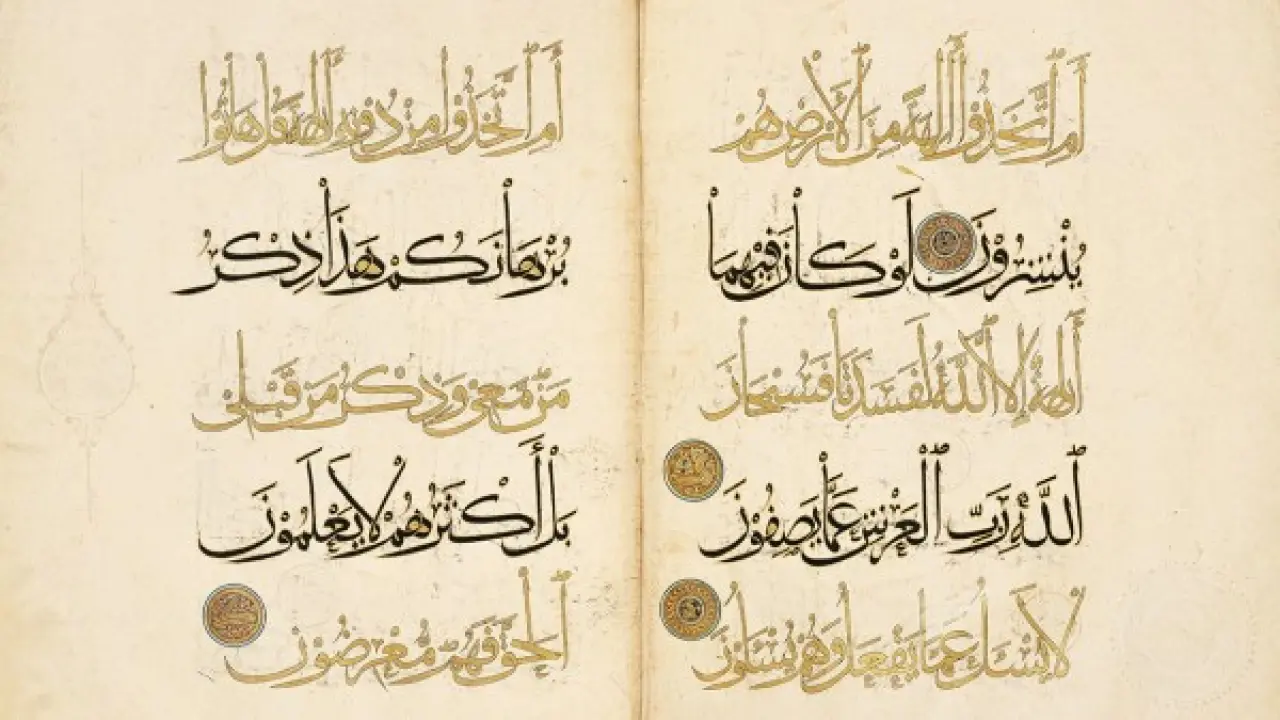 أَمِ ٱتَّخَذُوٓا۟ ءَالِهَةً مِنَ ٱلْأَرْضِ هُمْ
يُنْشِرُوْنَ لَوْ كَانَ فِيْهِمَا
ءَالِهَةٌ إِلَّا ٱللَّهُ لَفَسَدَتَا فَسُبْحَانَ
ٱللَّهِ رَبِّ ٱلْعَرْشِ عَمَّا يَصِفُوْنَ
لَا يُسْـَٔلُ عَمَّا يَفْعَلُ وَهُمْ يُسْـَٔلُوْنَ
أَمِ ٱتَّخَذُوا مِنْ دُونِهِ ءَالِهَةً قُلْ هَاتُوا
بُرْهَانَكُمْ هَذَا ذِكْرُ
مَنْ مَّعِيَ وَذِكْرُ مَنْ قَبْلِي
بَلْ أَكْثَرُهُمْ لَا يَعْلَمُوْنَ
ٱلْحَقَّ فَهُمْ مُعْرِضُوْنَ